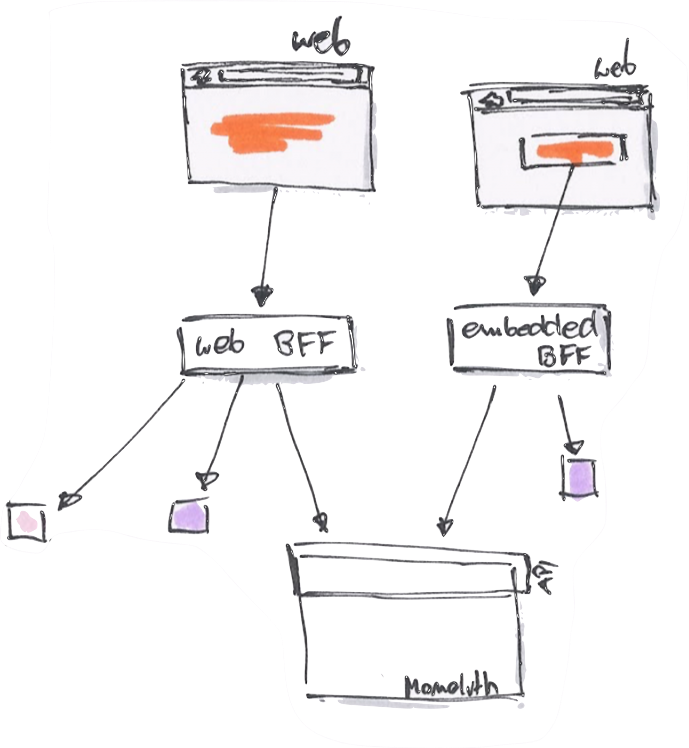 web
web
web BFF
embedded
BFF
API
Monolyth